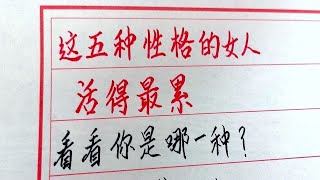 这五种性格的女人
活得最累
看看你是哪一种？